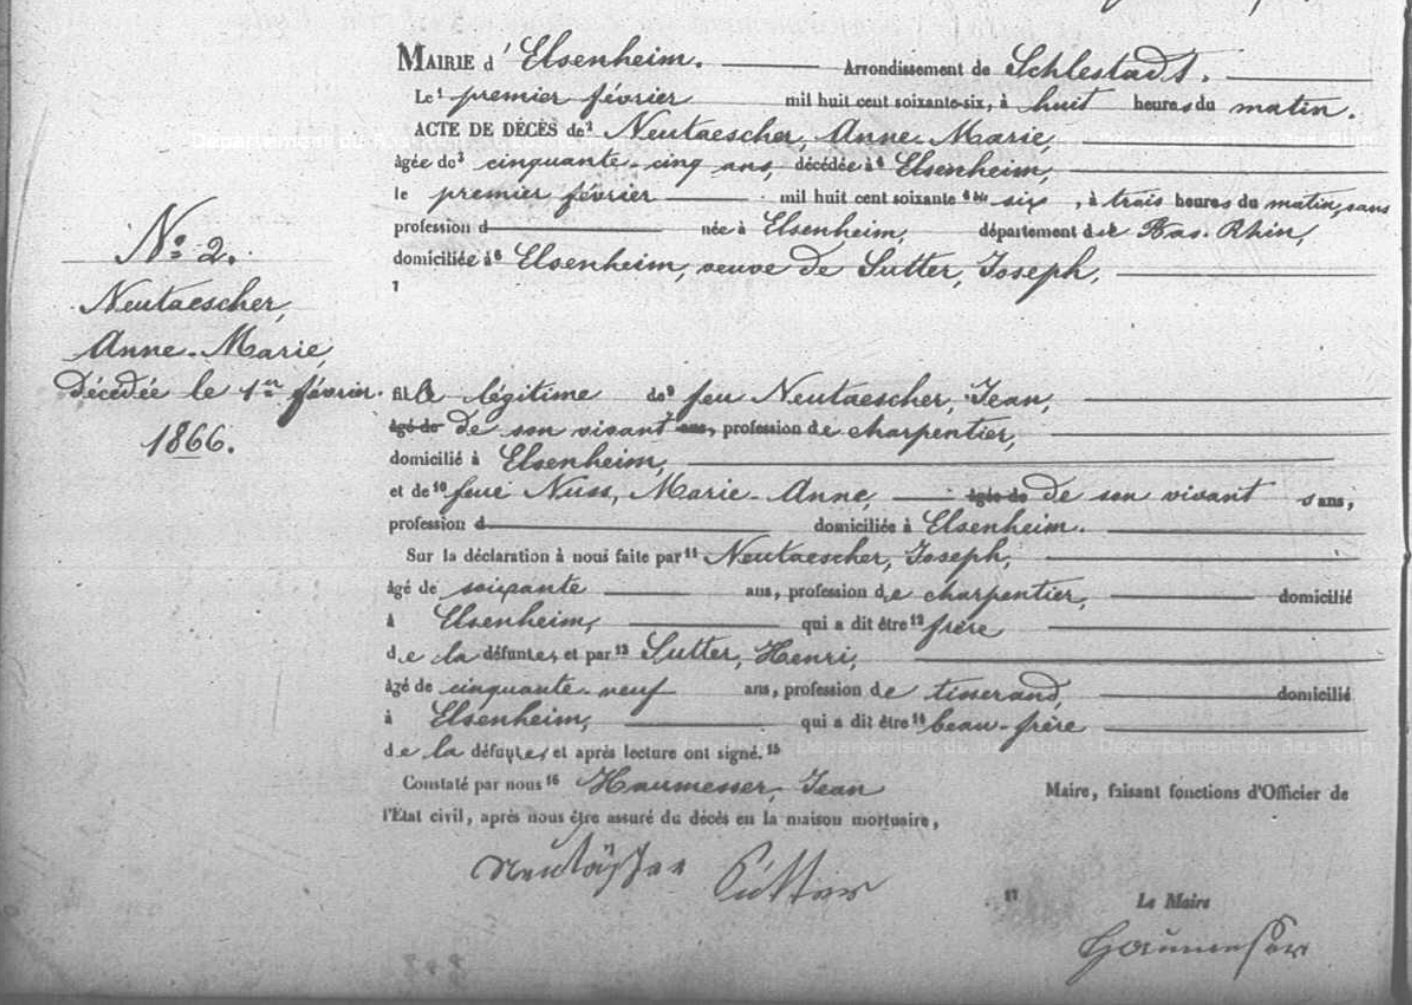 MAIRIE d' Elsenheim. Arrondissement de Schlestadt.
Le¹ premier février mil huit cent soixante-six, à huit heures du matin.
ACTE DE DÉCÈS de² Neutaescher, Anne-Marie,
âgée de³ cinquante-cinq ans, décédée à⁴ Elsenheim,
le premier février mil huit cent soixante ⁵ᵇⁱˢ six, à trois heures du matin, sans
profession d née à Elsenheim, département du Bas-Rhin,
domiciliée à⁶ Elsenheim, veuve de Sutter, Joseph,
7
No. 2.
Neutaescher,
Anne-Marie,
Décédée le 1er février
1866.
fille légitime de⁹ feu Neutaescher, Jean,
âgé de de son vivant ans, profession de charpentier,
domicilié à Elsenheim,
et de¹⁰ feue Nuss, Marie-Anne, âgée de de son vivant sans,
profession d domiciliée à Elsenheim.
Sur la déclaration à nous faite par¹¹ Neutaescher, Joseph,
âgé de soixante ans, profession de charpentier, domicilié
à Elsenheim, qui a dit être¹² frère
de la défunte, et par¹³ Sutter, Henri,
âgé de cinquante-neuf ans, profession de tisserand, domicilié
à Elsenheim, qui a dit être¹⁴ beau-frère
de la défunte, et après lecture ont signé.¹⁵
Constaté par nous¹⁶ Haumesser, Jean Maire, faisant fonctions d'Officier de
l'État civil, après nous être assuré du décès en la maison mortuaire,
Neutäscher Sutter
17 Le Maire
Haumesser